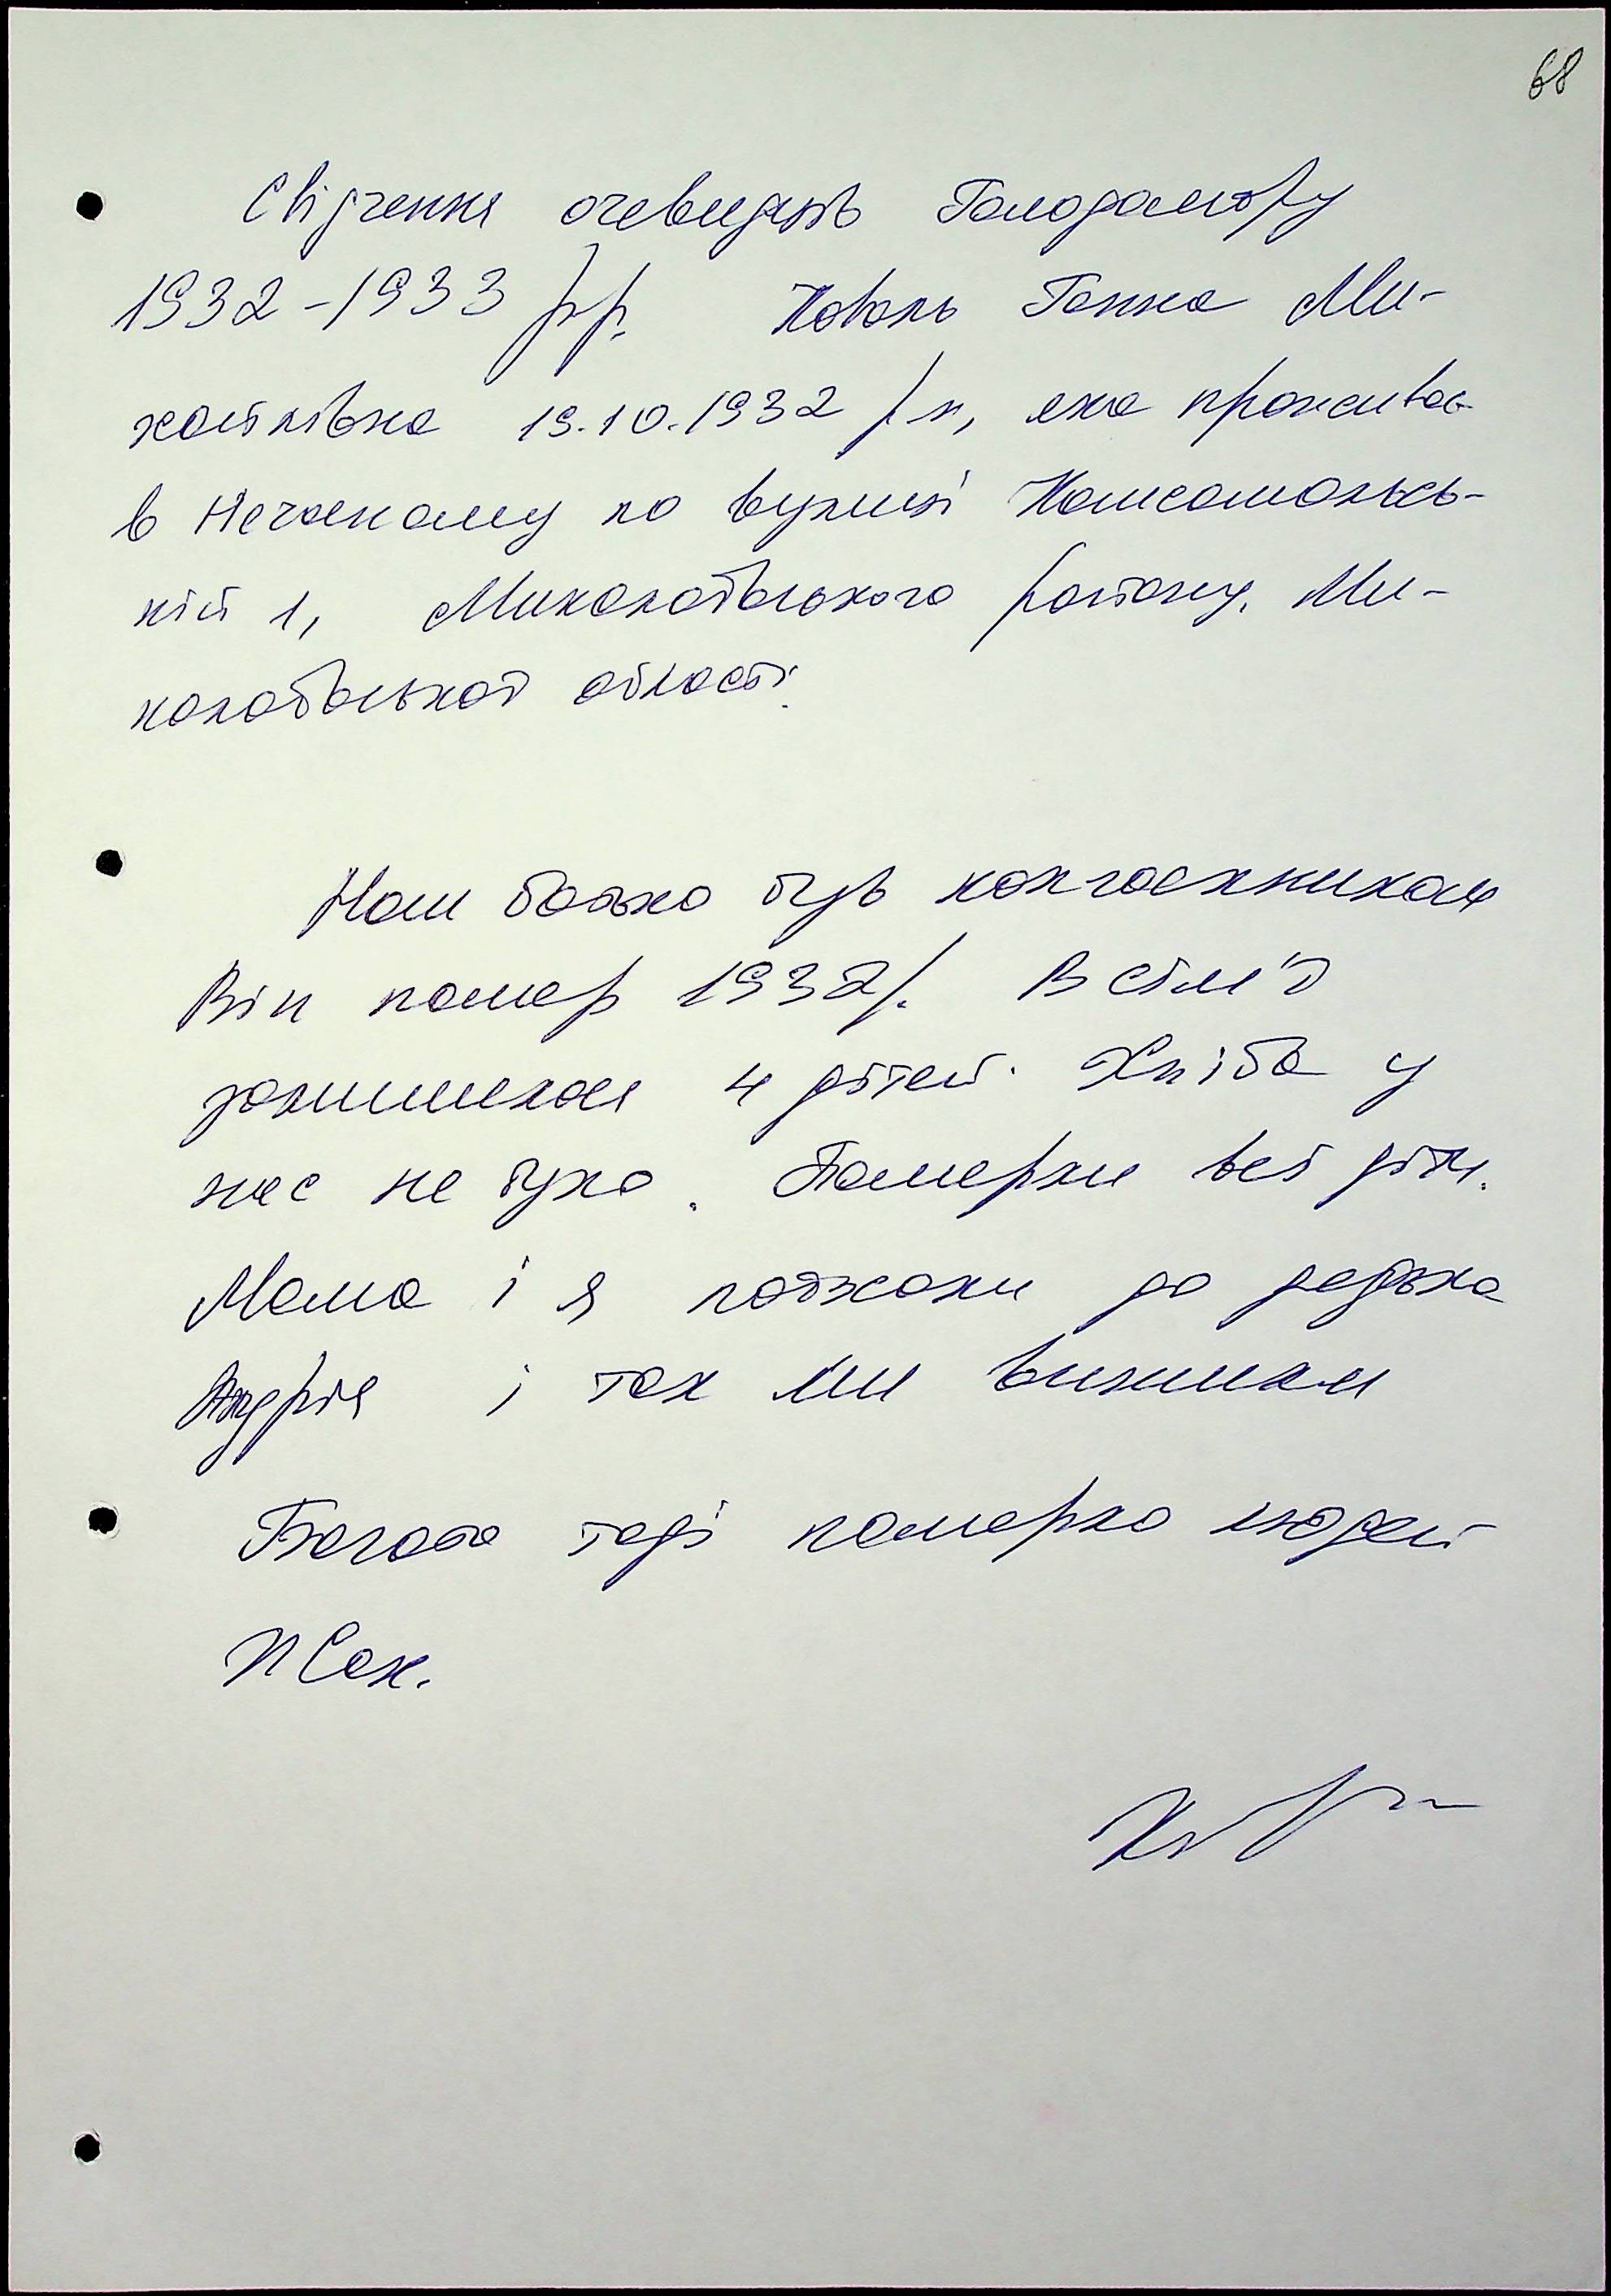 68
Свідчення очевидців Голодомору
1932-1933 рр. Коваль Ганна Ми-
хайлівна 19.10.1932 р н, яка проживає
в Нечаяному по вулиці Комсомольсь-
кій 1, Миколаївського району. Ми-
колаївської області.
Наш батько був колгоспником
Він помер 1932р. В сім'ї
залишилось 4 дітей. Хліба у
нас не було. Померли всі діти.
Мама і я поїхали до дядька
Андрія і так ми вижили
Багато тоді померло людей